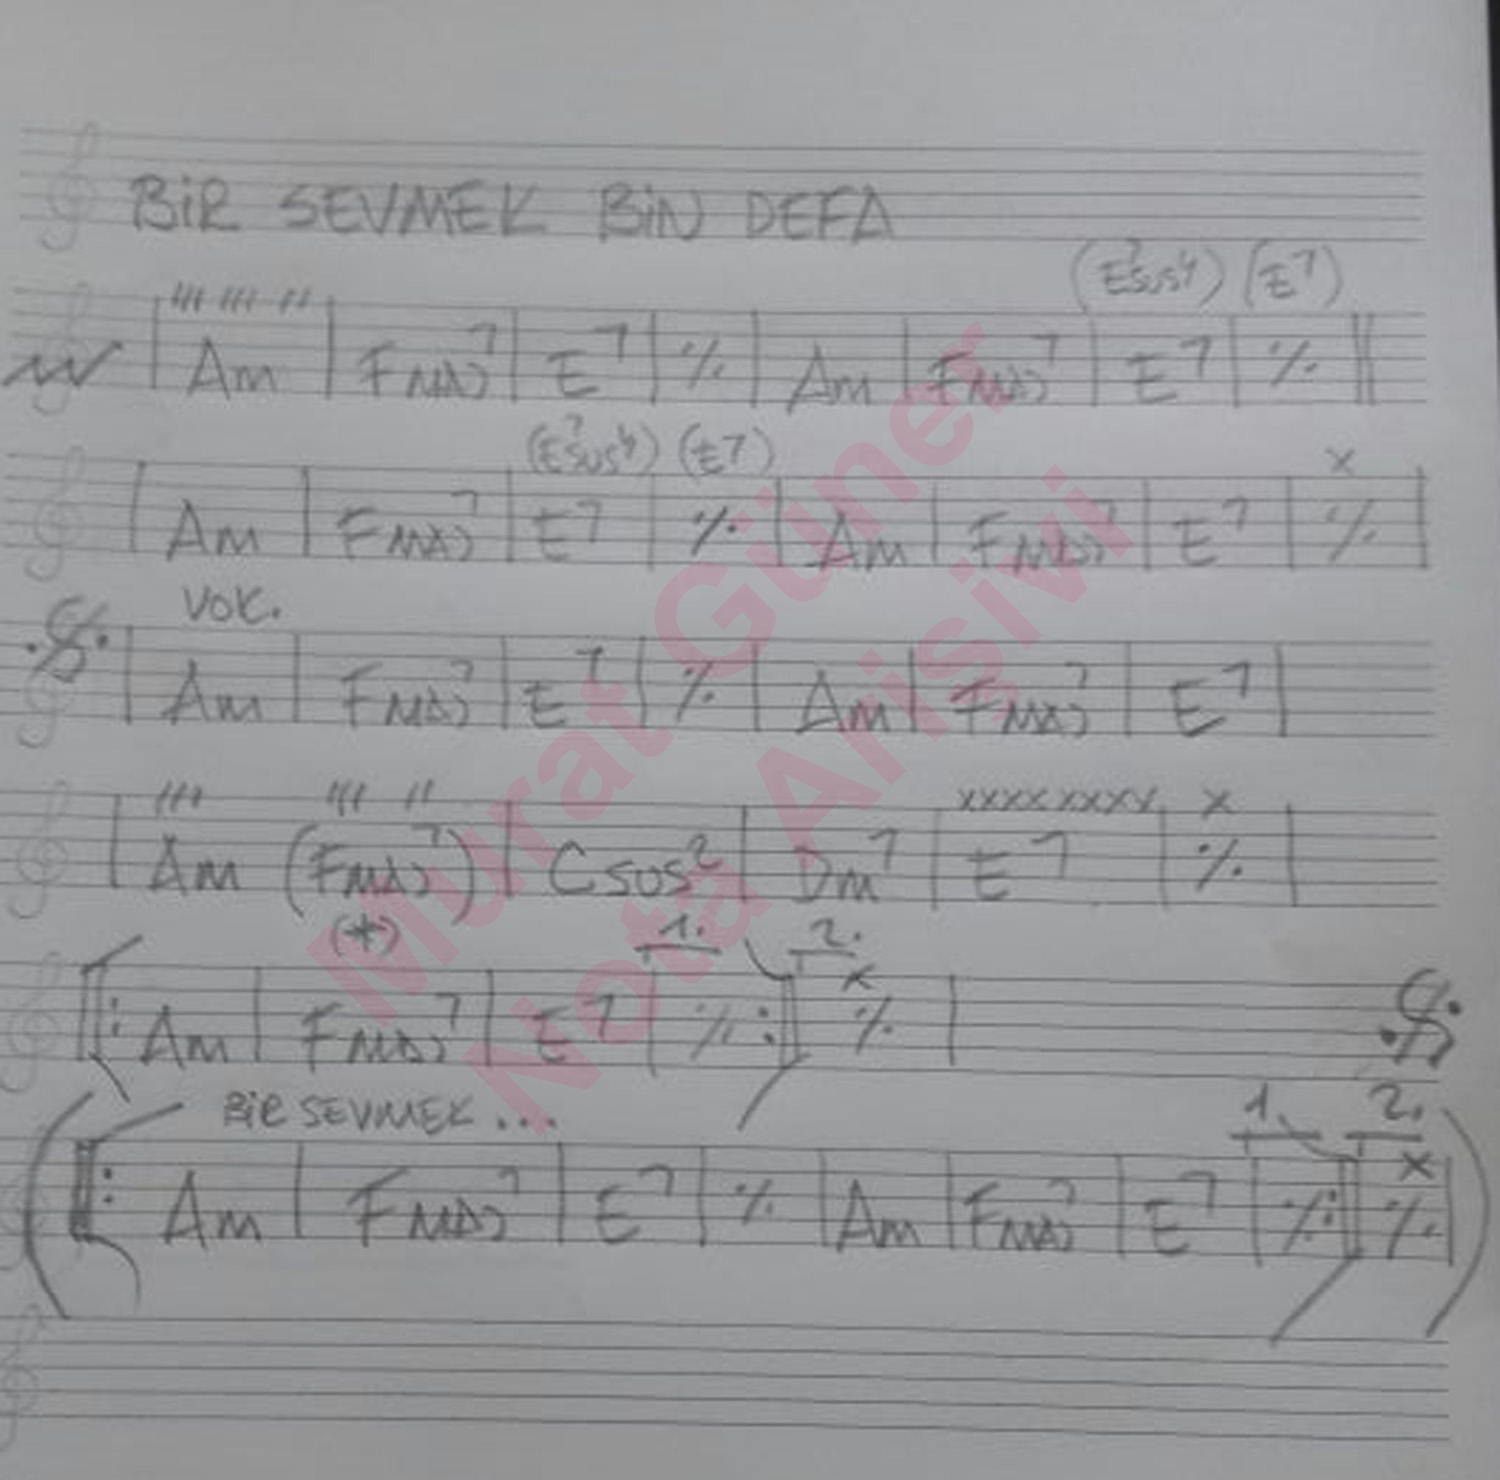 BİR SEVMEK BİN DEFA
(E7sus4) (E7)
Am | Fmaj7 | E7 | ٪ | Am | Fmaj7 | E7 | ٪ ||
(E7sus4) (E7) x
| Am | Fmaj7 | E7 | ٪ | Am | Fmaj7 | E7 | ٪ |
VOK.
| Am | Fmaj7 | E7 | ٪ | Am | Fmaj7 | E7 |
/// /// // xxxxxxxx x
| Am (Fmaj7) | Csus2 | Dm7 | E7 | ٪ |
(*) 1. 2. x
|: Am | Fmaj7 | E7 | ٪ :| ٪ |
BİR SEVMEK... 1. 2. x
|: Am | Fmaj7 | E7 | ٪ | Am | Fmaj7 | E7 | ٪ :| ٪ |
Murat Güner
Nota Arisivi